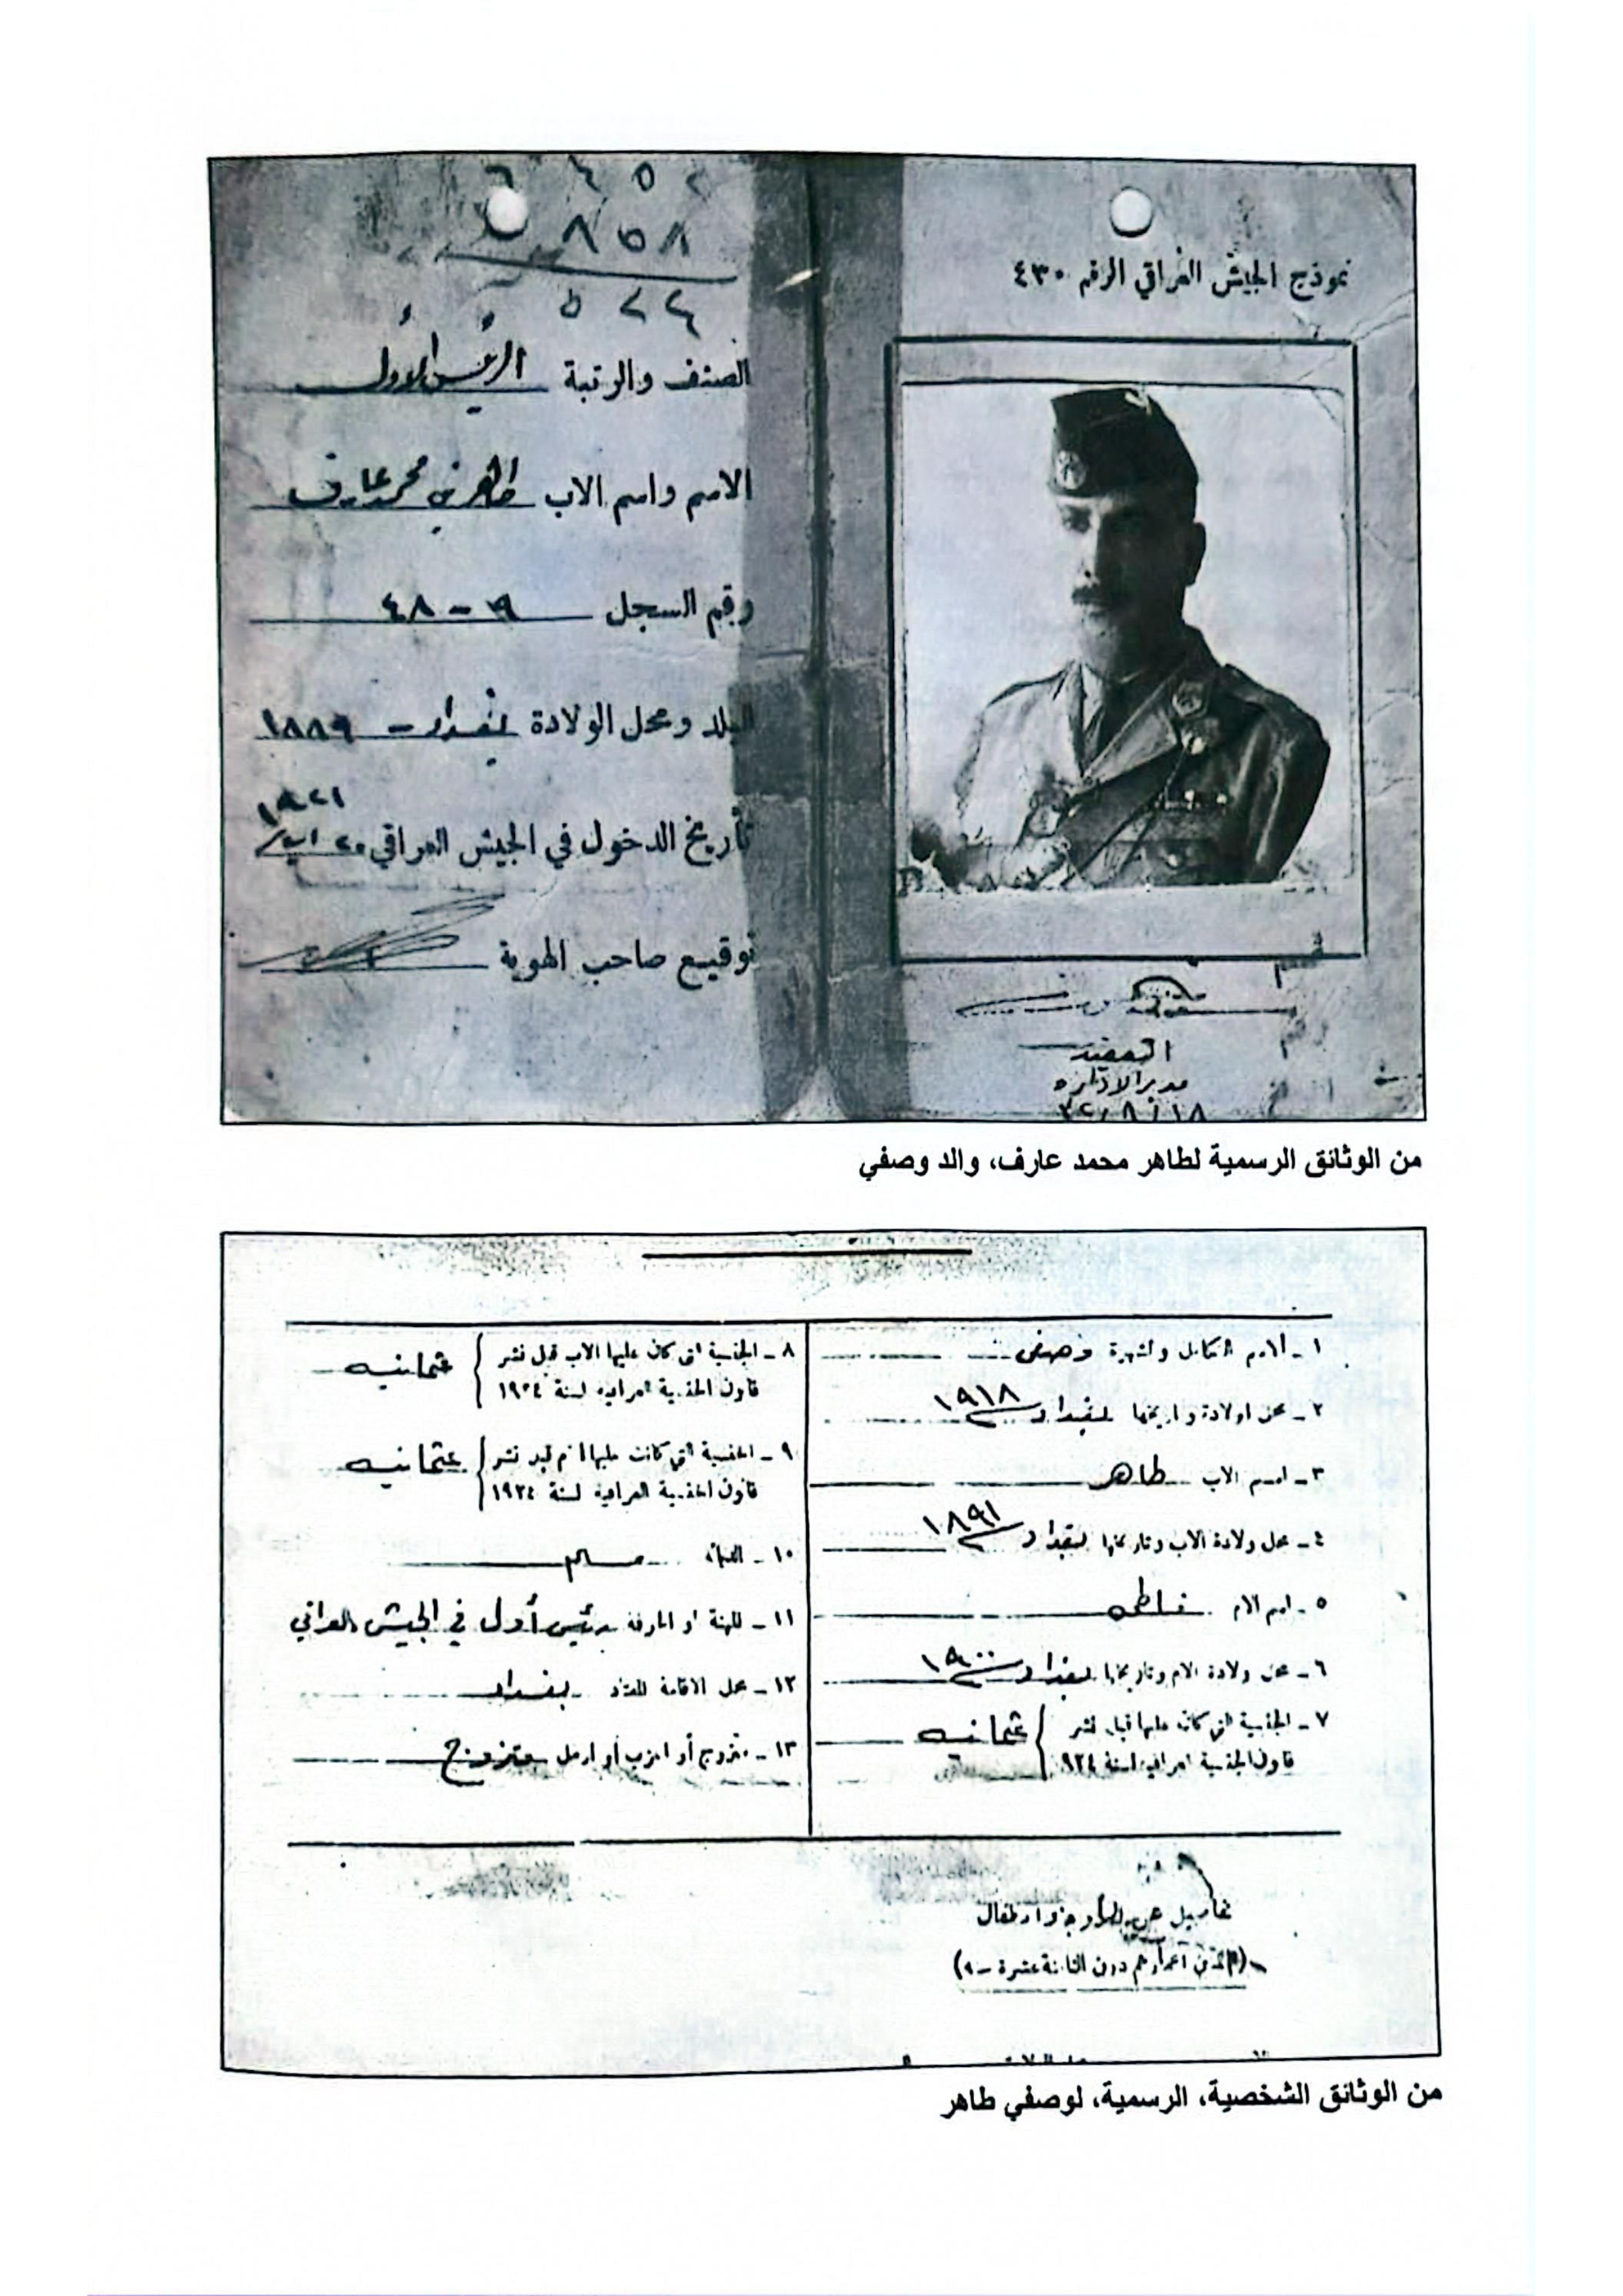 نموذج الجيش العراقي الرقم ٤٣٠
العقيد
مدير الادارة
٣٢/٨/١٨
٨٥٨
٥٢٤
الصنف والرتبة الرئيس الاول
الاسم واسم الاب طاهر بن محمد عارف
رقم السجل ٣٩ - ٤٨
البلد ومحل الولادة بغداد - ١٨٨٩
١٩٢١
تأريخ الدخول في الجيش العراقي ٢٠
توقيع صاحب الهوية
من الوثائق الرسمية لطاهر محمد عارف، والد وصفي
١ - الاسم الكامل والشهرة وصفي
٢ - محل الولادة وتاريخها بغداد ١٩١٨
٣ - اسم الاب طاهر
٤ - محل ولادة الاب وتاريخها بغداد ١٨٩١
٥ - اسم الام فاطمه
٦ - محل ولادة الام وتاريخها بغداد ١٩٠٠
٧ - الجنسية التي كان عليها قبل نشر
قانون الجنسية العراقية لسنة ١٩٢٤ عثمانيه
٨ - الجنسية التي كان عليها الاب قبل نشر
قانون الجنسية العراقية لسنة ١٩٢٤ عثمانيه
٩ - الجنسية التي كانت عليها الام قبل نشر
قانون الجنسية العراقية لسنة ١٩٢٤ عثمانيه
١٠ - الديانة مسلم
١١ - المهنة او الحرفة رئيس أول في الجيش العراقي
١٢ - محل الاقامة المعتاد بغداد
١٣ - متزوج أو اعزب أو ارمل متزوج
تفاصيل عن الزوجة والاطفال
من الوثائق الشخصية، الرسمية، لوصفي طاهر